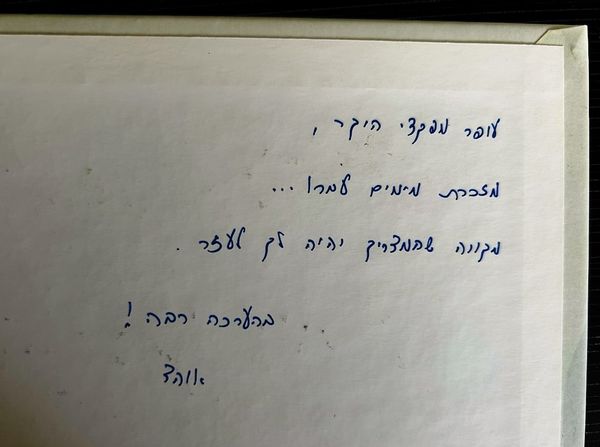 עופר מפקדי היקר,
מזכרת מימים עברו...
מקווה שהמדריך יהיה לך לעזר.
בהערכה רבה!
אוהד